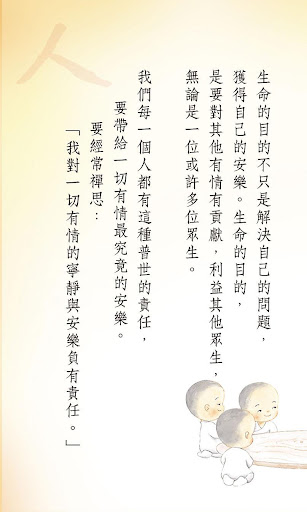 人
生命的目的不只是解決自己的問題，
獲得自己的安樂。生命的目的，
是要對其他有情有貢獻，利益其他眾生，
無論是一位或許多位眾生。
我們每一個人都有這種普世的責任，
要帶給一切有情最究竟的安樂。
要經常禪思：
「我對一切有情的寧靜與安樂負有責任。」